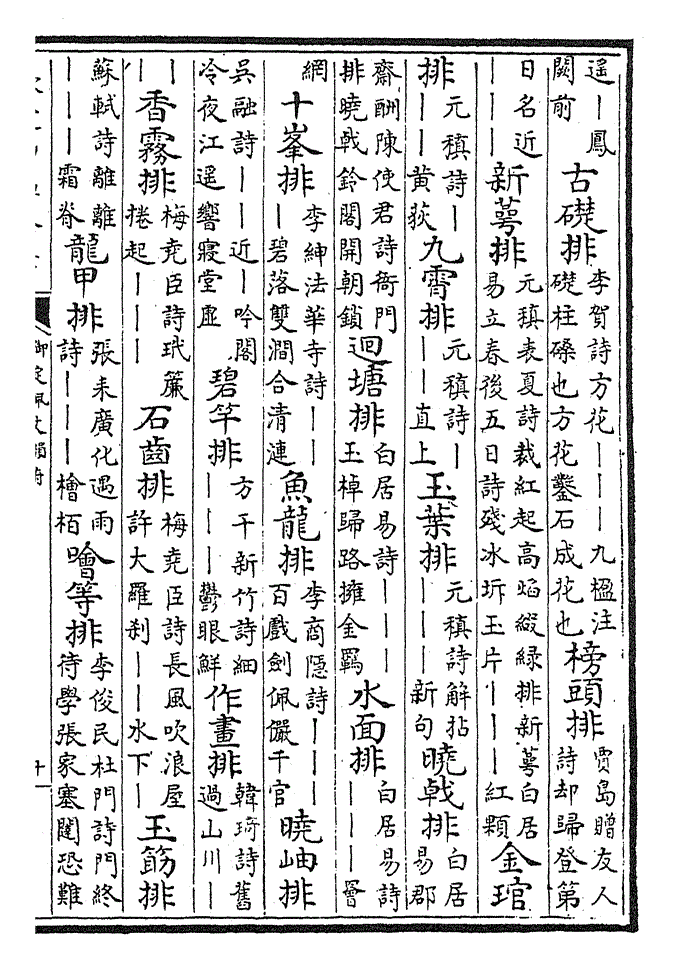 遥｜鳳闕前 古礎排 李賀詩方花｜｜｜九楹注礎柱磉也方花鑿石成花也 榜頭排 賈島贈友人詩却歸登第
日名近｜｜｜ 新萼排 元稹表夏詩裁紅起高焰綴緑排新萼白居易立春後五日詩殘冰坼玉片｜｜｜紅顆 金琯
排 元稹詩｜｜｜黄荻 九霄排 元稹詩｜｜｜直上 玉葉排 元稹詩解拈｜｜｜新句 曉戟排 白居易郡
齋酬陳使君詩衙門排曉戟鈴閣開朝鎖 迴塘排 白居易詩｜｜｜玉棹歸路擁金羈 水面排 白居易詩｜｜｜罾
網 十峯排 李紳法華寺詩｜｜｜碧落雙澗合清漣 魚龍排 李商隱詩｜｜｜百戲劍佩儼千官 曉岫排
吳融詩｜｜近｜吟閣冷夜江遥響寢堂虛 碧竿排 方干新竹詩細｜｜｜鬱眼鮮 作畫排 韓琦詩舊過山川｜
｜｜ 香霧排 梅堯臣詩玳簾捲起｜｜｜ 石齒排 梅堯臣詩長風吹浪屋許大羅刹｜｜水下｜ 玉筯排
蘇軾詩離離｜｜｜｜霜脊 龍甲排 張耒廣化遇雨詩｜｜｜檜栢 噲等排 李俊民杜門詩門終待學張家塞闔恐難
御定佩文韻府